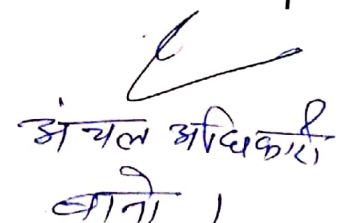 अंचल अधिकारी
बानो ।